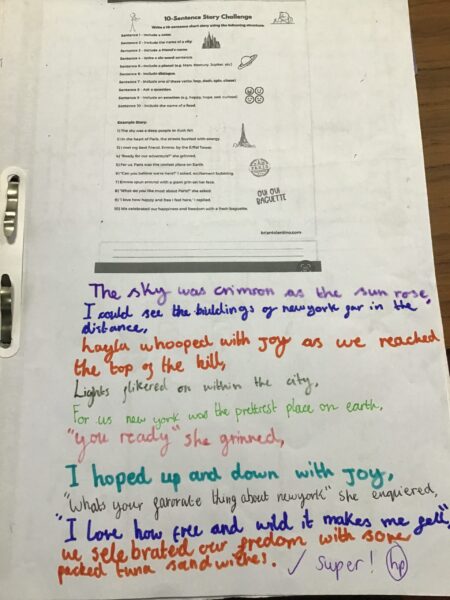 10-Sentence Story Challenge
Write a 10-sentence short story using the following structure.
Sentence 1 - Include a color.
Sentence 2 - Include the name of a city.
Sentence 3 - Include a friend's name.
Sentence 4 - Write a six-word sentence.
Sentence 5 - Include a planet (e.g. Mars, Mercury, Jupiter, etc)
Sentence 6 - Include dialogue.
Sentence 7 - Include one of these verbs: hop, dash, spin, chase)
Sentence 8 - Ask a question.
Sentence 9 - Include an emotion (e.g. happy, hope, sad, curious)
Sentence 10 - Include the name of a food.
Example Story:
1) The sky was a deep purple at
2) In the heart of Paris, the streets buzzed with energy.
3) I met my best friend, Emma, by the Eiffel Tower.
4) "Ready for our adventure?" she grinned.
5) For us, Paris was the coolest place on Earth.
6) "Can you believe we're here?" I asked, excitement bubbling.
7) Emma spun around with a giant grin on her face.
8) "What do you like most about Paris?" she asked.
9) "I love how happy and free I feel here," I replied.
10) We celebrated our happiness and freedom with a fresh baguette.
PARIS
OUI OUI
BAGUETTE
briantolentino.com
The sky was crimson as the sun rose,
I could see the buildings of newyork far in the
distance,
hayla whooped with joy as we reached
the top of the hill,
Lights flikered on within the city,
For us new york was the prettrest place on earth,
"you ready" she grinned,
I hoped up and down with joy,
"Whats your favorate thing about newyork" she enquiered,
"I love how free and wild it makes me fell",
we selebrated our fredom with some
packed tuna sandwiches. ✓ super! hp